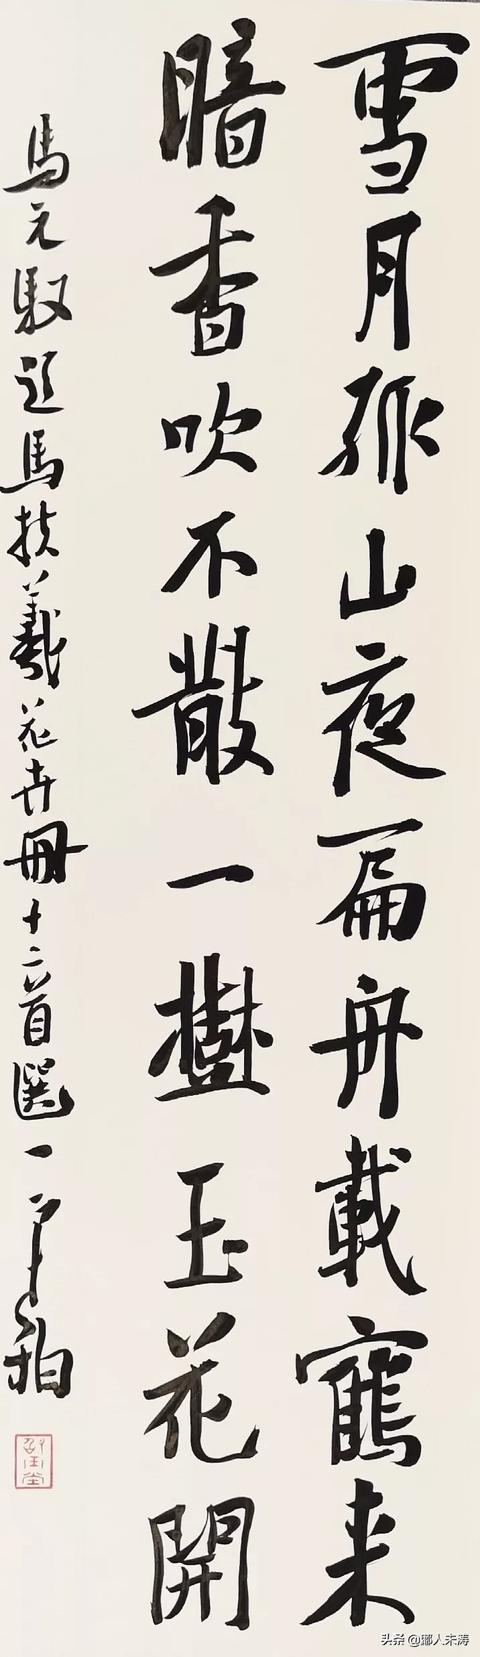 雪月孤山夜扁舟載鶴来
暗香吹不散一樹玉花開
馬元馭題馬扶羲花卉冊十六首選一
头条 @鄉人未涛